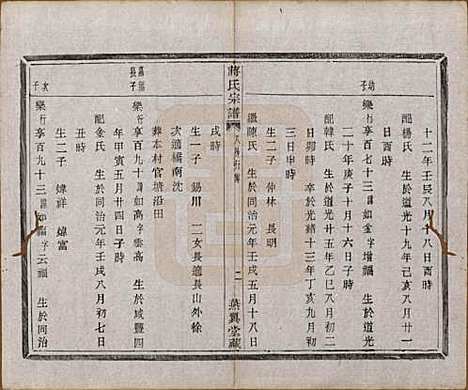 十二年壬辰八月十八日酉時
幼子
樂行亨百七十三諱如金字增福 生於道光
配楊氏 生於道光十九年乙亥八月廿一
日酉時
配韓氏 生於道光廿五年乙巳八月初二
二十年庚子十月十六日子時
日卯時 卒於光緒十三年丁亥九月初
三日申時
生二子 仲林 長明
繼陳氏 生於同治元年壬戌五月十八日
戌時
生一子 錫川 二女長適長山外徐
次適橋南沈
葬本村官塘沿田
嘉福長子
樂行亨百九十諱如高字雲高 生於咸豐四
年甲寅五月廿四日子時
配金氏 生於同治元年壬戌八月初七日
丑時
生二子 煒祥 煒富
次子
樂行亨百九十三諱如福字云福 生於同治
蔣氏宗譜
二